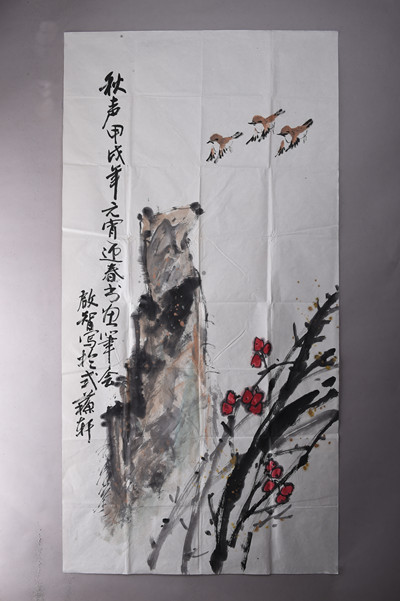 秋声甲戌年元宵迎春书画笔会
启智写于式蘐轩